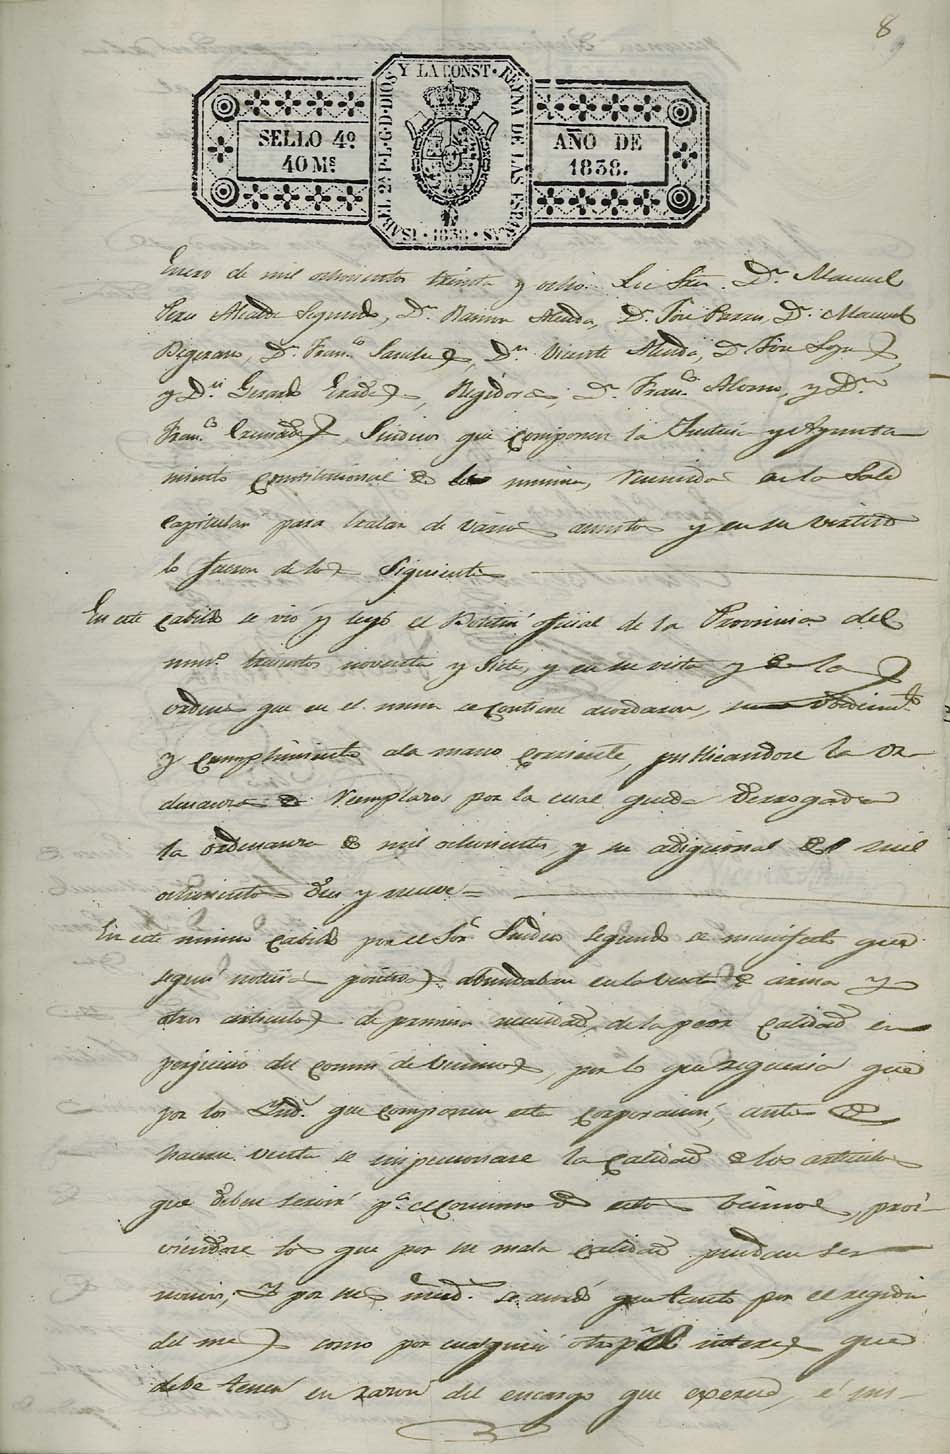 8
ISABEL 2ª P. L. G. D. DIOS Y LA CONST. REYNA DE LAS ESPAÑAS
SELLO 4º
40 Mˢ
AÑO DE
1838.
1838
Enero de mil ochocientos treinta y ocho. Los Sres. Dn. Manuel
Alcalde Segundo, Dn. Ramon Merida, Dn. José Parra, Dn. Manuel
Bejarano, Dn. Franco. Sanchez, Dn. Vicente Merida, Dn. José
y Dn. Gerardo, Regidores, Dn. Franco. Alonso, y Dn.
Franco. Sindicos que componen la Justicia y Ayunta
miento constitucional de la misma, reunidos en la Sala
capitular para tratar de varios asuntos y en su virtud
lo fueron de los Siguientes
En este Cabildo se vió y leyó el Boletin oficial de la Provincia del
numo. trescientos noventa y siete, y en su vista y de las
ordenes que en el mismo se contiene acordaron, su obedecimto.
y cumplimiento a la mano corriente, publicandose la or
denanza de Remplazos por la cual queda derrogada
la ordenanza de mil ochocientos, y su adiccional del mil
ochocientos diez y nueve=
En este mismo Cabildo por el Sor. Sindico segundo se manifestó que
segun noticias abundaban en la venta de carnes y
otros articulos de primera necesidad, de la peor calidad en
perjuicio del comun de vecinos, por lo que requeria que
por los que componen esta corporacion, antes de
hacerse venta se inspeccionase la calidad de los articulos
que deben servir pa. el consumo de estos vecinos, proi-
viendose los que por su mala calidad puedan ser
nocivos, y por sus se acordó que tanto por el regidor
del mes como por cualquier otro pr. el interes que
debe tener en razon del encargo que exerce, é ins-